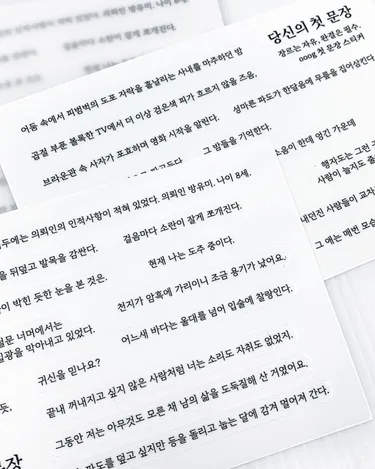 당신의 첫 문장
장르는 자유, 완결은 필수.
ooog 첫 문장 스티커
어둠 속에서 피범벅의 도포 자락을 흩날리는 사내를 마주하던 밤
곱절 부푼 볼록한 TV에서 더 이상 검은색 피가 흐르지 않을 즈음,
성마른 파도가 한달음에 무릎을 집어삼킨다.
브라운관 속 사자가 포효하며 영화 시작을 알린다.
그 밤들을 기억한다.
소음이 한데 엉긴 가운데
행자도는 그런
사람이 늘지도 줄
내던진 사람들이 교차
그 애는 매번 모습
두에는 의뢰인의 인적사항이 적혀 있었다. 의뢰인 방유미. 나이 8세.
걸음마다 소란이 잘게 쪼개진다.
을 뒤덮고 발목을 감싼다.
현재 나는 도주 중이다.
이 박힌 듯한 눈을 본 것은.
천지가 암흑에 가리이니 조금 용기가 났어요.
철문 너머에서는
일광을 막아내고 있었다.
어느새 바다는 울대를 넘어 입술에 찰랑인다.
귀신을 믿나요?
끝내 꺼내지고 싶지 않은 사람처럼 너는 소리도 자취도 없었지.
듯,
그동안 저는 아무것도 모른 채 남의 삶을 도둑질해 산 거였어요.
파도를 덮고 싶지만 등을 돌리고 눕는 달에 감겨 멀어져 간다.